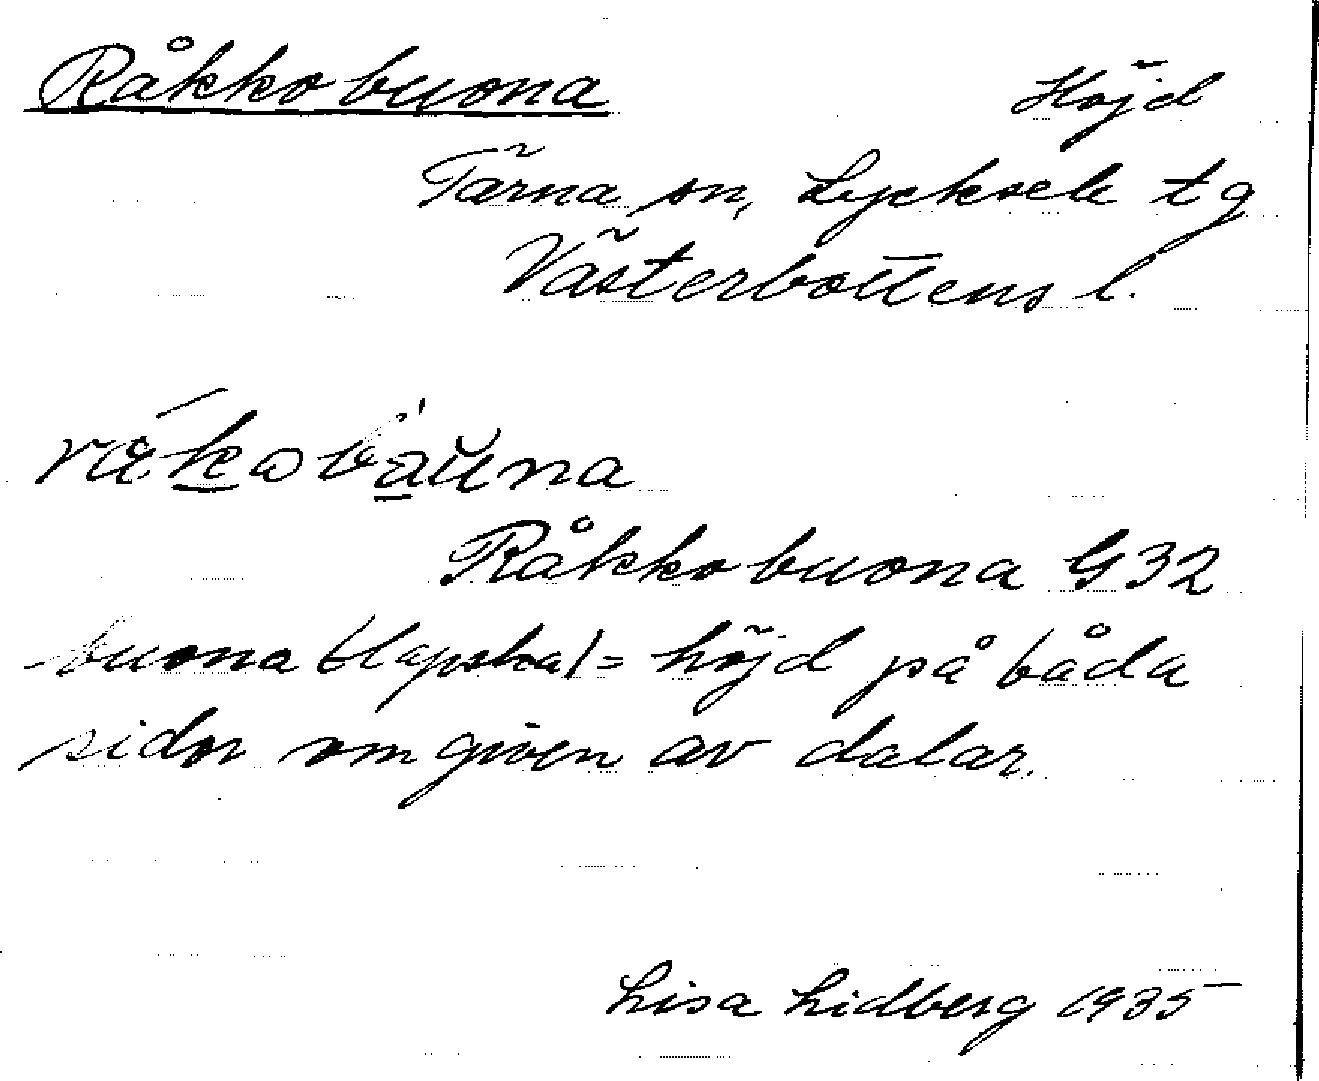 Råkkobuona Höjd
Tärna sn, Lycksele tg
Västerbottens l.
råkobåŭna
Råkkobuona G32
buona (lapska) = höjd på båda
sidor omgiven av dalar.
Lisa Lidberg 1935